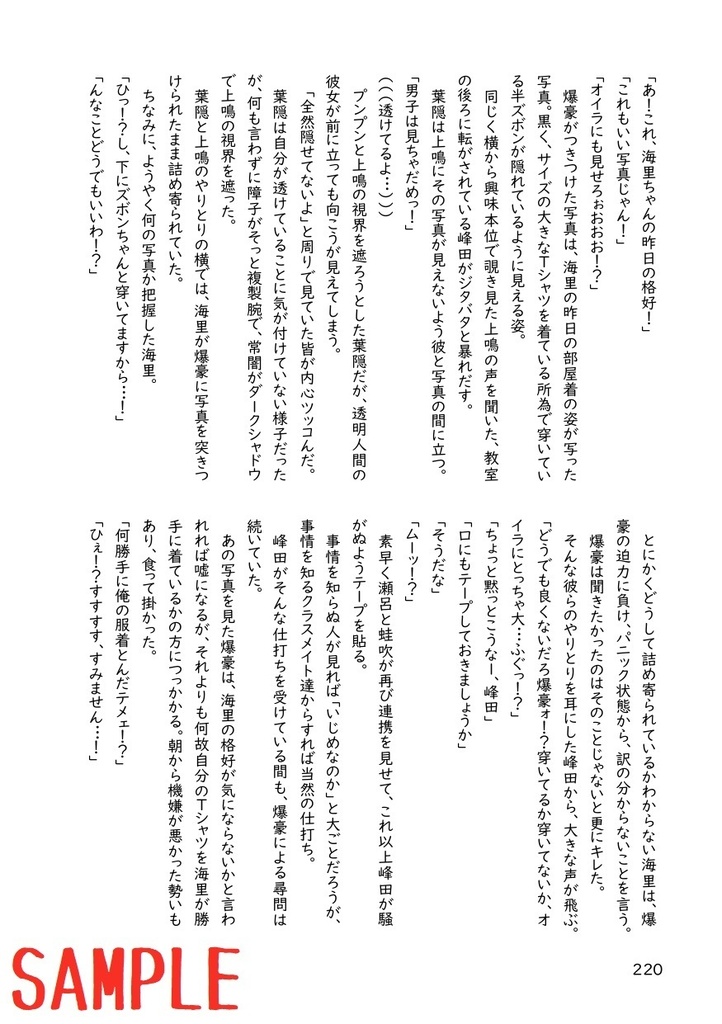 「あ！これ、海里ちゃんの昨日の格好！」
「これもいい写真じゃん！」
「オイラにも見せろぉおおお！？」
　爆豪がつきつけた写真は、海里の昨日の部屋着の姿が写った
写真。黒く、サイズの大きなTシャツを着ている所為で穿いてい
る半ズボンが隠れているように見える姿。
　同じく横から興味本位で覗き見た上鳴の声を聞いた、教室
の後ろに転がされている峰田がジタバタと暴れだす。
　葉隠は上鳴にその写真が見えないよう彼と写真の間に立つ。
「男子は見ちゃだめっ！」
（（（透けてるよ…）））
　プンプンと上鳴の視界を遮ろうとした葉隠だが、透明人間の
彼女が前に立っても向こうが見えてしまう。
　「全然隠せてないよ」と周りで見ていた皆が内心ツッコんだ。
　葉隠は自分が透けていることに気が付けていない様子だった
が、何も言わずに障子がそっと複製腕で、常闇がダークシャドウ
で上鳴の視界を遮った。
　葉隠と上鳴のやりとりの横では、海里が爆豪に写真を突きつ
けられたまま詰め寄られていた。
　ちなみに、ようやく何の写真か把握した海里。
「ひっ！？し、下にズボンちゃんと穿いてますから…！」
「んなことどうでもいいわ！？」
　とにかくどうして詰め寄られているかわからない海里は、爆
豪の迫力に負け、パニック状態から、訳の分からないことを言う。
　爆豪は聞きたかったのはそのことじゃないと更にキレた。
　そんな彼らのやりとりを耳にした峰田から、大きな声が飛ぶ。
「どうでも良くないだろ爆豪ォ！？穿いてるか穿いてないか、オ
イラにとっちゃ大…ふぐっ！？」
「ちょっと黙っとこうなー、峰田」
「口にもテープしておきましょうか」
「そうだな」
「ムーッ！？」
　素早く瀬呂と蛙吹が再び連携を見せて、これ以上峰田が騒
がぬようテープを貼る。
　事情を知らぬ人が見れば「いじめなのか」と大ごとだろうが、
事情を知るクラスメイト達からすれば当然の仕打ち。
　峰田がそんな仕打ちを受けている間も、爆豪による尋問は
続いていた。
　あの写真を見た爆豪は、海里の格好が気にならないかと言わ
れれば嘘になるが、それよりも何故自分のTシャツを海里が勝
手に着ているかの方につっかかる。朝から機嫌が悪かった勢いも
あり、食って掛かった。
「何勝手に俺の服着とんだテメェ！？」
「ひぇ！？すすすす、すみません…！」
220
SAMPLE